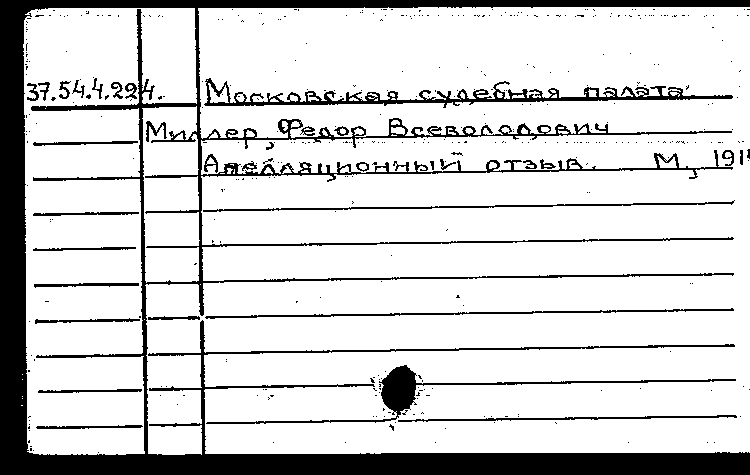 37.54.4.224. Московская судебная палата.
Миллер, Федор Всеволодович
Апелляционный отзыв. М.,